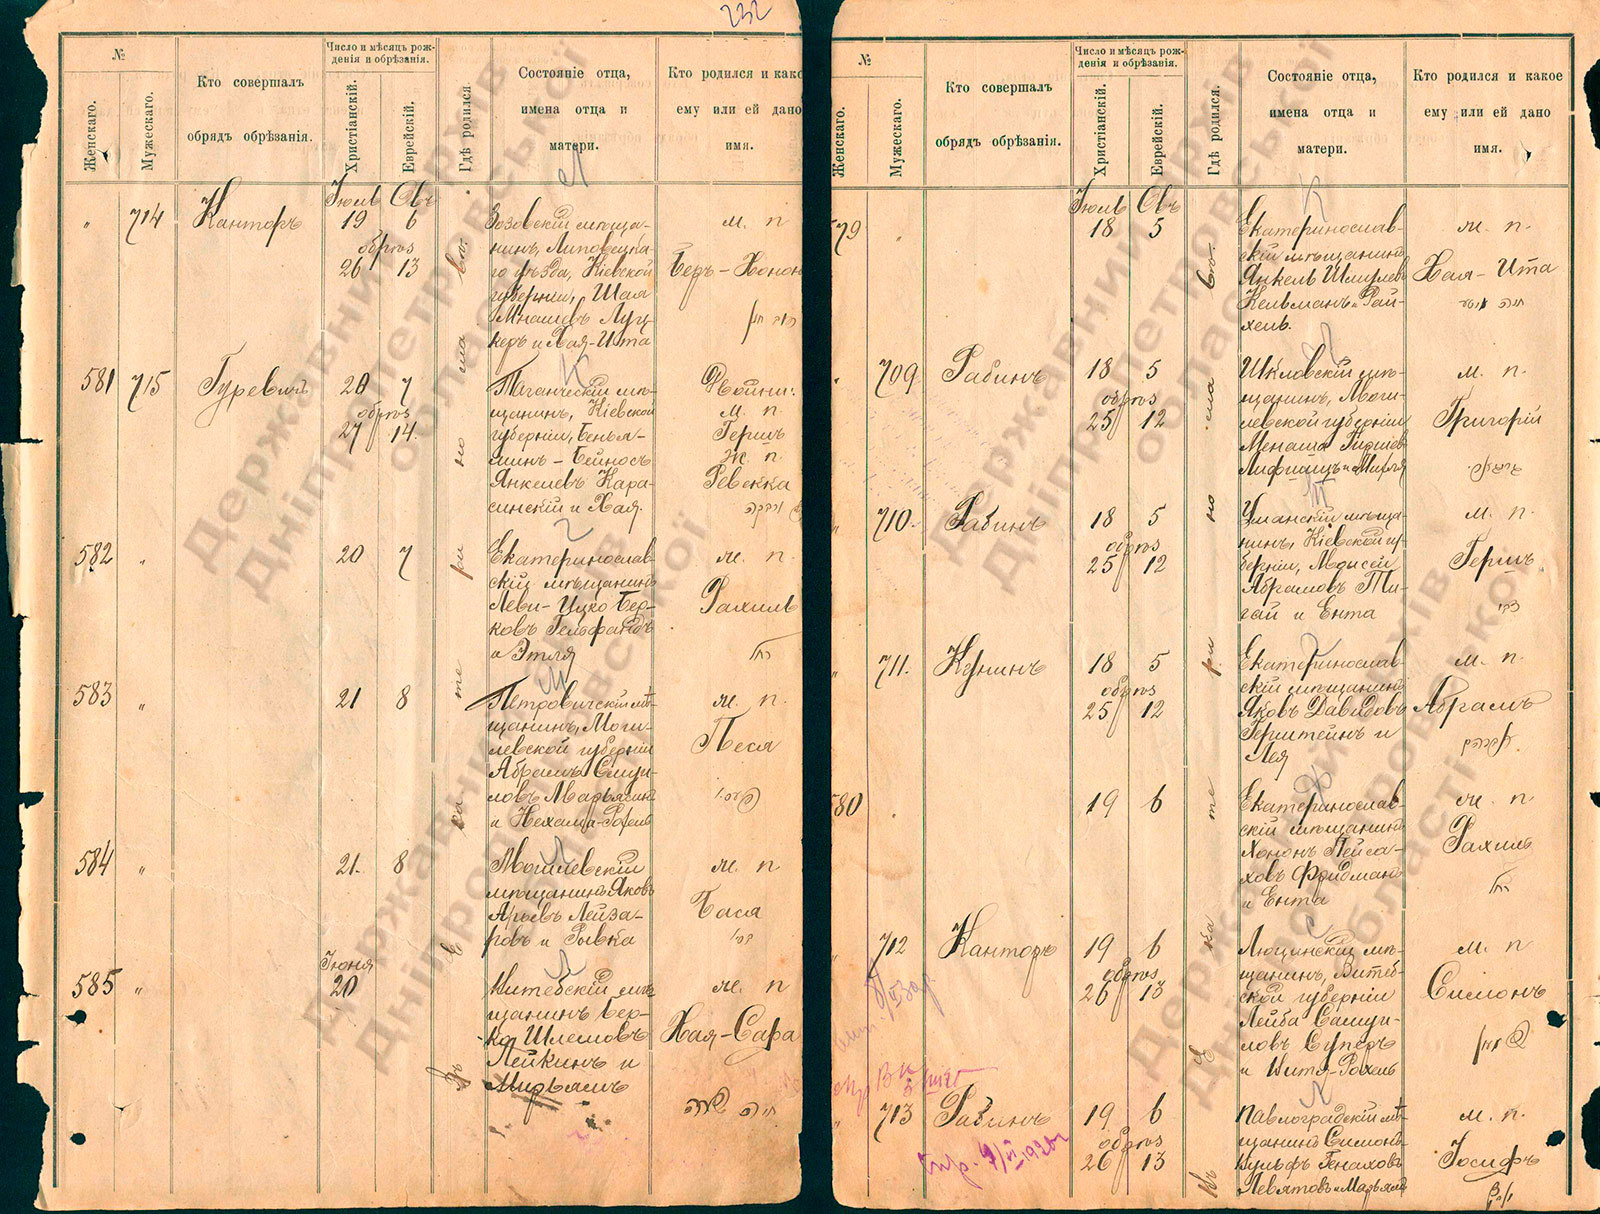 232
№
Женскаго.
Мужескаго.
Кто совершалъ
обрядъ обрѣзанія.
Число и мѣсяцъ рож-
денія и обрѣзанія.
Христіанскій.
Еврейскій.
Гдѣ родился
Состояніе отца,
имена отца и
матери.
Кто родился и какое
ему или ей дано
имя.
Въ Екатеринославѣ
Іюль Овъ
" 714 Канторъ 19 6
обрѣз
26 13
Зозовскій мѣща-
нинъ, Липовецка-
го уѣзда, Кіевской
губерніи, Шая
Мнашевъ Луц-
керъ и Хая-Ита
м. п
Беръ-Хонон
581 715 Гуревичъ 20 7
обрѣз
27 14.
Таганческій мѣ-
щанинъ, Кіевской
губерніи, Бенья-
минъ-Бейносъ
Янкелевъ Кара-
синскій и Хая.
Двойни:
м. п.
Гершъ
ж. п.
Ревекка
582 " 20 7
Екатеринослав-
скій мѣщанинъ
Леви-Ицко Бер-
ковъ Гельфандъ
и Этля
ж. п
Рахиль
רחל
583 " 21 8
Петровичскій мѣ-
щанинъ, Моги-
левской губерніи
Абрамъ Самуи-
ловъ Марьясинъ
и Нехама-
ж. п.
Песя
584 " 21. 8
Могилевскій
мѣщанинъ Яковъ
Арьевъ Лейза-
ровъ и Рывка
ж. п
Бася
Іюня
585 " 20
Витебскій мѣ-
щанинъ Бер-
ка Шлемовъ
Лейкинъ и
Мирьямъ
ж. п
Хая-Сара
חיה שרה
№
Женскаго.
Мужескаго.
Кто совершалъ
обрядъ обрѣзанія.
Число и мѣсяцъ рож-
денія и обрѣзанія.
Христіанскій.
Еврейскій.
Гдѣ родился.
Состояніе отца,
имена отца и
матери.
Кто родился и какое
ему или ей дано
имя.
Въ Екатеринославѣ
Іюль Овъ
579 " 18 5
Екатеринослав-
скій мѣщанинъ
Янкель Шмулев
Кельманъ и Рай-
хель.
ж. п.
Хая-Ита
חיה איטא
" 709 Рабинъ 18 5
обрѣз
25 12
Шкловскій мѣ-
щанинъ, Моги-
левской губерніи
Менаша
Лифшицъ и Мирля
м. п.
Григорій
" 710. Рабинъ 18 5
обрѣз
25 12
Уманскій мѣща-
нинъ, Кіевской гу-
берніи, Моисей
Абрамовъ Ти-
гай и Ента
м. п.
Гершъ
" 711. Кунинъ 18 5
обрѣз
25 12
Екатеринослав-
скій мѣщанинъ
Яковъ Давидовъ
Герштейнъ и
Лея
м. п.
Абрамъ
580 19 6
Екатеринослав-
скій мѣщанинъ
Хононъ Пейса-
ховъ Фридманъ
и Ента
ж. п
Рахиль
רחל
" 712 Канторъ 19 6
обрѣз
26 13
Люцинскій мѣ-
щанинъ, Витеб-
ской губерніи
Лейба Самуи-
ловъ Суперъ
и Витя-Рохль
м. п
Симонъ
" 713 Рабинъ 19 6
обрѣз
26 13
Павлоградскій мѣ-
щанинъ Симонъ-
Вульфъ Генаховъ
Левятовъ и Марьямъ
м. п.
Іосифъ
Державний архів
Дніпропетровської
області